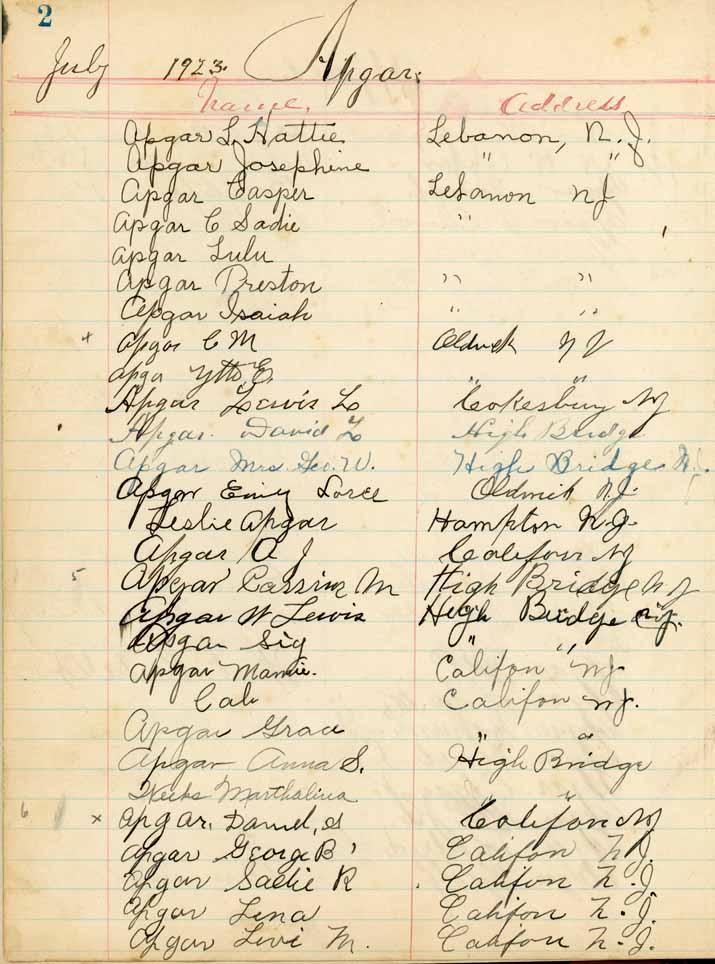 2
July 1923. Apgar.
Name. Address
Apgar L. Hattie Lebanon, N. J.
Apgar Josephine " "
Apgar Casper Lebanon NJ
Apgar C Sadie "
Apgar Lulu
Apgar Preston " "
Apgar Isaiah " "
+ Apgar C M Oldwick N J
Apgar E. " "
Apgar Lewis L Cokesbury NJ
Apgar. David L High Bridge
Apgar Mrs. Geo. W. High Bridge N.J.
Apgar Oldwick N.J.
Leslie Apgar Hampton N.J.
Apgar A J Califon NJ
5 Apgar M High Bridge N J
Apgar W Lewis High Bridge N.J.
Apgar Sig " "
Apgar Mamie. Califon NJ
Califon NJ.
Apgar Grace " "
Apgar Anna S. High Bridge
Marthalina " "
6 x Apgar. Daniel, Califon NJ
Apgar George B Califon N.J.
Apgar Sadie R Califon N.J.
Apgar Lena Califon N.J.
Apgar Levi M. Califon N.J.